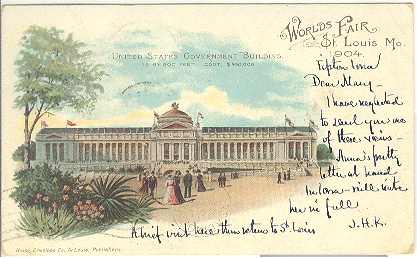 WORLDS FAIR
St. Louis Mo.
1904.
UNITED STATES GOVERNMENT BUILDING.
COST, $450,000.
Tipton Iowa
Dear Mary –
I have neglected
to send you one
of these views –
Anna's pretty
letter at hand
will write
her in full
J.H.K.
A brief visit here then return to St Louis
St. Louis, Publishers.